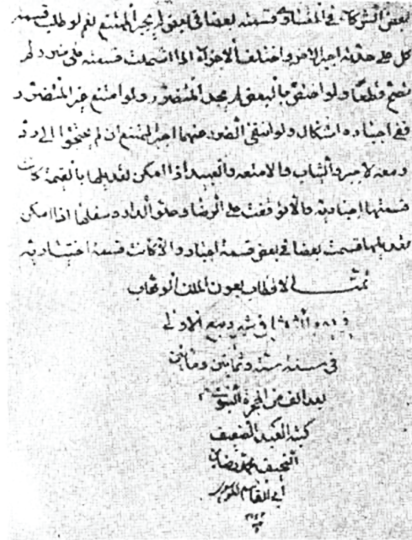 بعض الشركاء في المتساوي قسمته بعضا في بعض لم يجبر الممتنع نعم لو طلب قسمة
كل على حدته اجبر الاخر واختلف الاجزاء اما اشتملت قسمته على ضرر لم
بالبعض لم يجبر المتضرر ولو امتنع غير المتضرر
ففي اجباره اشكال ولو انتفى الضرر عنهما اجبر الممتنع ان لم يحتج الى رد
ومعه لا جبر والثياب والامتعة والعبيد اذا امكن تعديلها بالقيمة كانت
قسمتها اجبارية والا توقفت على الرضا وعلو الدار وسفلها اذا امكن
تعديلهما قسمت بعضا في بعض قسمة اجبار والا كانت قسمة اختيارية
بعون الملك الوهاب
في شهر ربيع الاول
في سنة ستة وثمانين ومائتين
بعد الف من الهجرة النبوية
كتبه العبد الضعيف
النحيف محمد
ابي القاسم